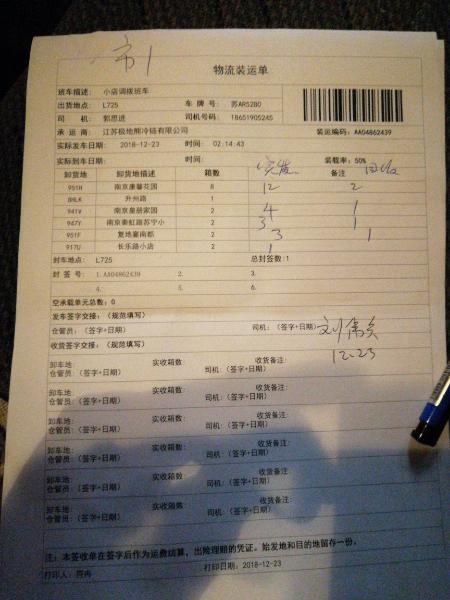 市1
物流装运单
班车描述: 小店调拨班车
出货地点: L725 车 牌 号: 苏AR5280
司 机: 郭思进 司机号码: 18651905245
承 运 商: 江苏极地熊冷链有限公司 装运编码: AA04862439
实际发车日期: 2018-12-23 时间: 02:14:43
实际到车日期: 时间: 装载率: 50%
卸货地 卸货地描述 箱数 实发 备注 回收
951H 南京康馨花园 8 12 2
8HLK 升州路 1
941V 南京皇册家园 2 4 1
947Y 南京秦虹路苏宁小 2 3 1
951F 复地宴南都 2 3 1
917U 长乐路小店 2 1
封车地点: L725 总封签数:1
封 签 号: 1.AA04862439 2. 3.
4. 5. 6.
空承载单元总数: 0
发车签字交接: (规范填写)
仓管员: (签字+日期) 司机: (签字+日期)
12.23
收货签字交接: (规范填写)
卸车地: 实收箱数: 收货备注:
仓管员: (签字+日期) 司机: (签字+日期)
卸车地: 实收箱数: 收货备注:
仓管员: (签字+日期) 司机: (签字+日期)
卸车地: 实收箱数: 收货备注:
仓管员: (签字+日期) 司机: (签字+日期)
卸车地: 实收箱数: 收货备注:
仓管员: (签字+日期) 司机: (签字+日期)
卸车地: 实收箱数: 收货备注:
仓管员: (签字+日期) 司机: (签字+日期)
卸车地: 实收箱数: 收货备注:
仓管员: (签字+日期) 司机: (签字+日期)
注: 本签收单在签字后作为运费结算, 出险理赔的凭证。始发地和目的地留存一份。
打印人: 符冉 打印日期: 2018-12-23